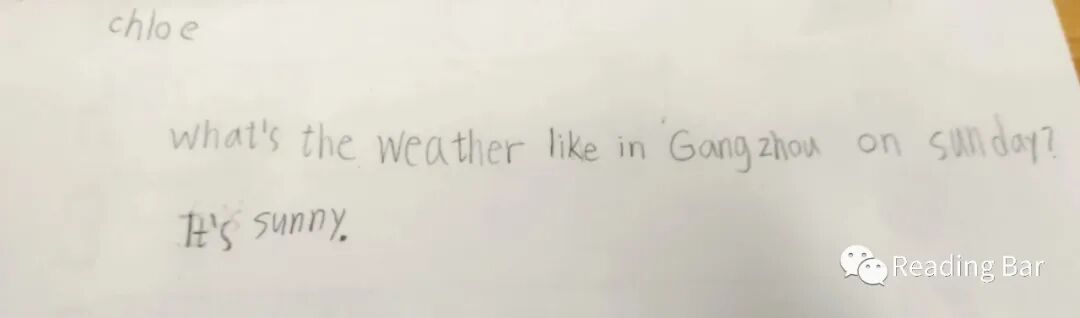 chloe
what's the weather like in Gangzhou on sunday?
It's sunny.
Reading Bar